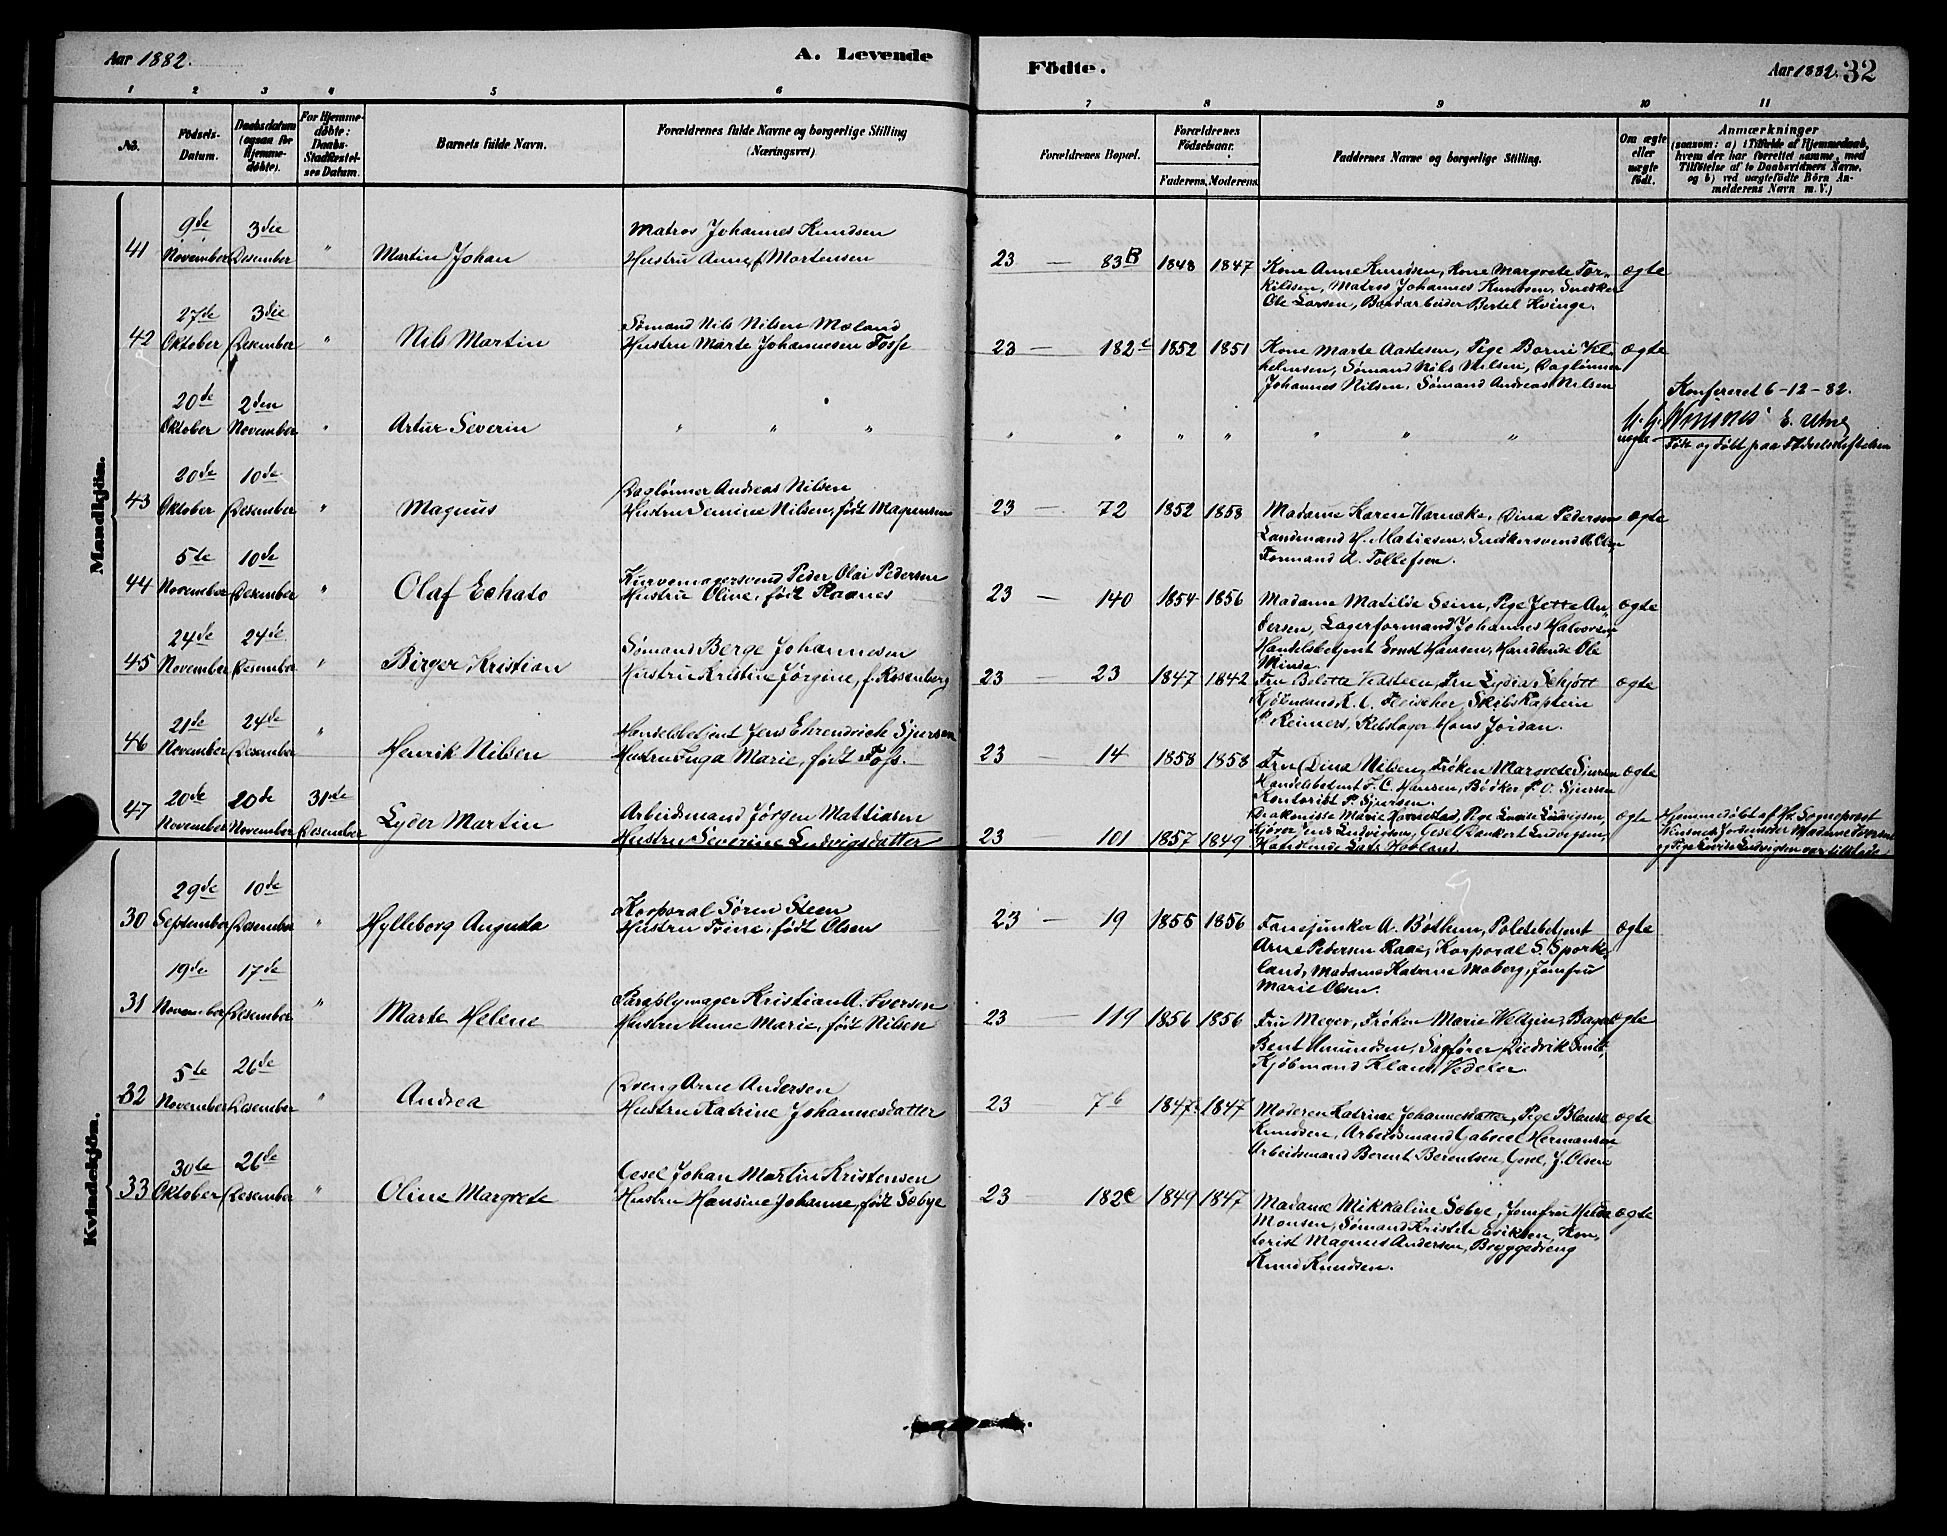 Aar 1882.
A. Levende
Fødte.
Aar 1882.
32
1 2 3 4 5 6 7 8 9 10 11
No.
Födsels-
Datum.
Daabsdatum
(ogsaa for
Hjemme-
døbte).
For Hjemme-
døbte:
Daabs-
Stadfæstel-
ses Datum.
Barnets fulde Navn.
Forældrenes fulde Navne og borgerlige Stilling
(Næringsvei)
Forældrenes Bopæl.
Forældrenes
Födselsaar.
Faderens. Moderens.
Faddernes Navne og borgerlige Stilling.
Om ægte
eller
uægte
født.
Anmærkninger
(saasom: a) i Tilfælde af Hjemmedaab,
hvem der har forrettet samme, med
Tilføielse af to Daabsvidners Navne,
og b) ved uægtefødte Börn An-
melderens Navn m. V.)
Mandkjön.
9de 3die
41 November Desember " Martin Johan
Matros Johannes Knudsen
Hustru Anne f. Mortensen
23 — 83B 1848 1847
Kone Anne Knudsen, Kone Margrete Tor-
kildsen, Matros Johannes Knudsen, Snedker
Ole Larsen, Baadarbeider Bertel Kvinge.
ægte
27de 3die
42 Oktober Desember " Nils Martin
Sømand Nils Nilsen Mæland
Hustru Marte Johannesen Fosse
23 — 182c 1852 1851
Kone Marte Aastesen, Pige Borni Vil-
helmsen, Sømand Nils Nilsen, Daglønner
Johannes Nilsen, Sømand Andreas Nilsen
ægte
Konfereret 6-12-82.
20de 2den
Oktober November " Artur Severin
" " " " " " " " " "
uægte
Født og døbt paa Fødselsstiftelsen
20de 10de
43 Oktober Desember " Magnus
Daglønner Andreas Nilsen
Hustru Semine Nilsen, født Magnussen
23 — 72 1852 1858
Madame Karen Warncke, Dina Pedersen
Landmand H. Matiesen, Snedkersvend A. Olsen
Formand A. Tollefsen.
ægte
5te 10de
44 November Desember " Olaf Echato
Kurvemagersvend Peder Olai Pedersen
Hustru Olive, født Raanes
23 — 140 1854 1856
Madame Matilde Seim, Pige Jette An-
dersen, Lagerformand Johannes Halvorsen
Handelsbetjent Ernst Hansen, Handlende Ole
Minde.
ægte
24de 24de
45 November Desember " Birger Kristian
Sømand Berge Johannesen
Hustru Kristine Jørgine, f. Rosenberg
23 — 23 1847 1842
Fru Belotte Vedsteen, Fru Lydia Schjøtt
Kjøbmand K. C. Fleischer, Skibskaptein
P. Reimers, Rebslager Hans Jordan.
ægte
21de 24de
46 November Desember " Henrik Nilsen
Handelsbetjent Jens Ehrendrich Sjursen
Hustru Inga Marie, født Foss.
23 — 14 1858 1858
Fru Dina Nilsen, Frøken Margrete Sjursen
Handelsbetjent F. C. Hansen, Bødker P. O. Sjursen
Kontorist P. Sjursen.
ægte
20de 20de 31te
47 November November Desember Lyder Martin
Arbeidsmand Jørgen Mattiasen
Hustru Severine Ludvigsdatter
23 101 1857 1849
Diakonisse Marie Havnestad, Pige Lovise Ludvigsen
Kjører Jens Ludvigsen, Gesel Rankert Ludvigsen,
Handlende Lars Hovland.
ægte
Hjemmedøbt af Hr. Sognepræst
Jordemoder Madame Iversen
og Pige Lovise Ludvigsen var tilstede
Kvindekjön.
29de 10de
30 September Desember " Hylleborg Augusta
Korporal Sören Steen
Hustru Trine, født Olsen
23 — 19 1855 1856
Fanejunker A. Bøthun, Politibetjent
Arne Pedersen Raae, Korporal S. Sporke-
land, Madame Katrine Moberg, Jomfru
Marie Olsen.
ægte
19de 17de
31 November Desember " Marte Helene
Paraplymager Kristian A. Iversen
Hustru Anne Marie, født Nilsen
23 — 119 1856 1856
Fru Meyer, Frøken Marie Weltzin, Bager
Bent Amundsen, Sagfører Diedrik Smit,
Kjöbmand Klaus Vedeler.
ægte
5te 26de
32 November Desember " Andrea
Dreng Arne Andersen
Hustru Katrine Johannesdatter
23 — 7b 1847 1847
Moderen Katrine Johannesdatter, Pige Blanse
Knudsen, Arbeidsmand Gabriel Hermansen
Arbeidsmand Berent Berentsen, Gesel J. Olsen
ægte
30te 26de
33 Oktober Desember " Oline Margrete
Gesel Johan Martin Kristensen
Hustru Hansine Johanne, født Søbye
23 — 182c 1849 1847
Madame Mikkaline Søbye, Jomfru Hilda
Monsen, Sømand Kristele Eriksen, Kon-
torist Magnus Andersen, Bryggedreng
Knud Knudsen.
ægte